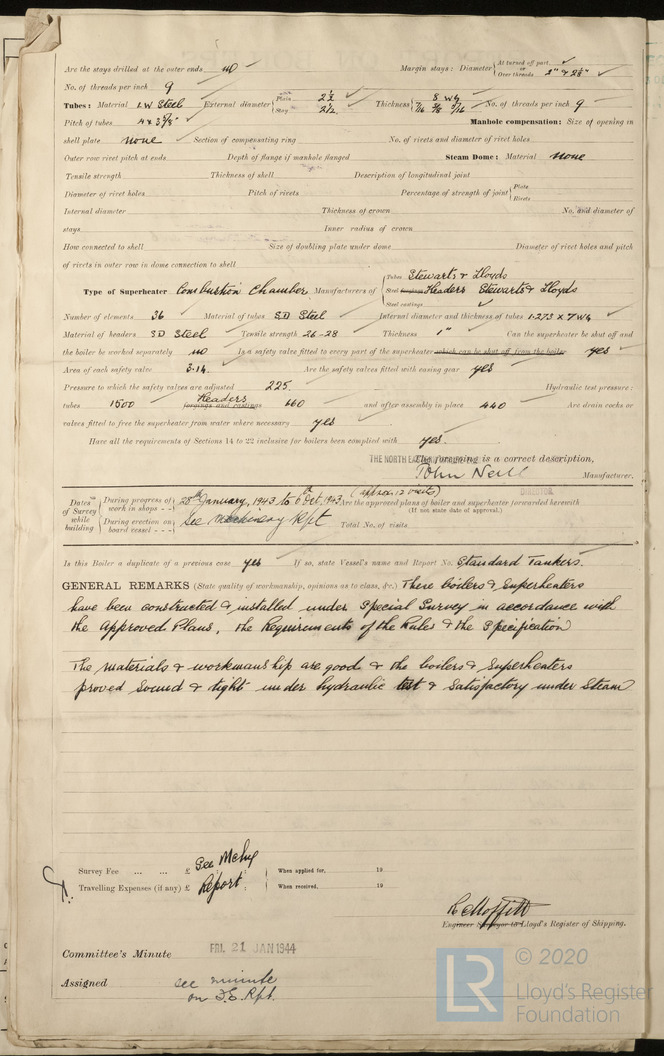 Are the stays drilled at the outer ends no Margin stays: Diameter { At turned off part, ✓ or Over threads 2" & 2 1/8" ✓
No. of threads per inch 9
Tubes: Material L.W Steel External diameter { Plain 2 1/2 Stay 2 1/2 Thickness { 8 WG 5/16 No. of threads per inch 9
Pitch of tubes 4 x 3 7/8" Manhole compensation: Size of opening in
shell plate none Section of compensating ring No. of rivets and diameter of rivet holes
Outer row rivet pitch at ends Depth of flange if manhole flanged Steam Dome: Material none
Tensile strength Thickness of shell Description of longitudinal joint
Diameter of rivet holes Pitch of rivets Percentage of strength of joint { Plate Rivets
Internal diameter Thickness of crown No. and diameter of
stays Inner radius of crown
How connected to shell Size of doubling plate under dome Diameter of rivet holes and pitch
of rivets in outer row in dome connection to shell
Type of Superheater Combustion Chamber Manufacturers of { Tubes Stewarts & Lloyds
Steel forgings Headers Stewarts & Lloyds
Steel castings ✓
Number of elements 36 Material of tubes S.D Steel Internal diameter and thickness of tubes 1.273 x 7WG
Material of headers S D Steel Tensile strength 26-28 Thickness 1" Can the superheater be shut off and
the boiler be worked separately no Is a safety valve fitted to every part of the superheater which can be shut off from the boiler yes
Area of each safety valve 3.14 Are the safety valves fitted with easing gear yes
Pressure to which the safety valves are adjusted 225. Hydraulic test pressure:
tubes 1500 forgings and castings Headers 660 and after assembly in place 440 Are drain cocks or
valves fitted to free the superheater from water where necessary yes
Have all the requirements of Sections 14 to 22 inclusive for boilers been complied with yes.
The foregoing is a correct description,
THE NORTH EA
John Neill Manufacturer.
DIRECTOR.
Dates of Survey while building { During progress of work in shops - - 28th January, 1943 to 6th Oct. 1943 (approx. 12 visits) Are the approved plans of boiler and superheater forwarded herewith
(If not state date of approval.)
During erection on board vessel - - - See machinery Rpt Total No. of visits
Is this Boiler a duplicate of a previous case yes If so, state Vessel's name and Report No. Standard Tankers.
GENERAL REMARKS (State quality of workmanship, opinions as to class, &c.) These boilers & Superheaters
have been constructed & installed under Special Survey in accordance with
the Approved Plans, the Requirements of the Rules & the Specification
The materials & workmanship are good & the boilers & Superheaters
proved Sound & tight under hydraulic test & Satisfactory under Steam
Survey Fee ... ... £ See Mchy : When applied for, 19
Travelling Expenses (if any) £ Report : When received, 19
R C Moffitt
Engineer Surveyor to Lloyd's Register of Shipping.
Committee's Minute FRI. 21 JAN 1944
Assigned see minute
on F.E. Rpt.
LR © 2020
Lloyd's Register
Foundation